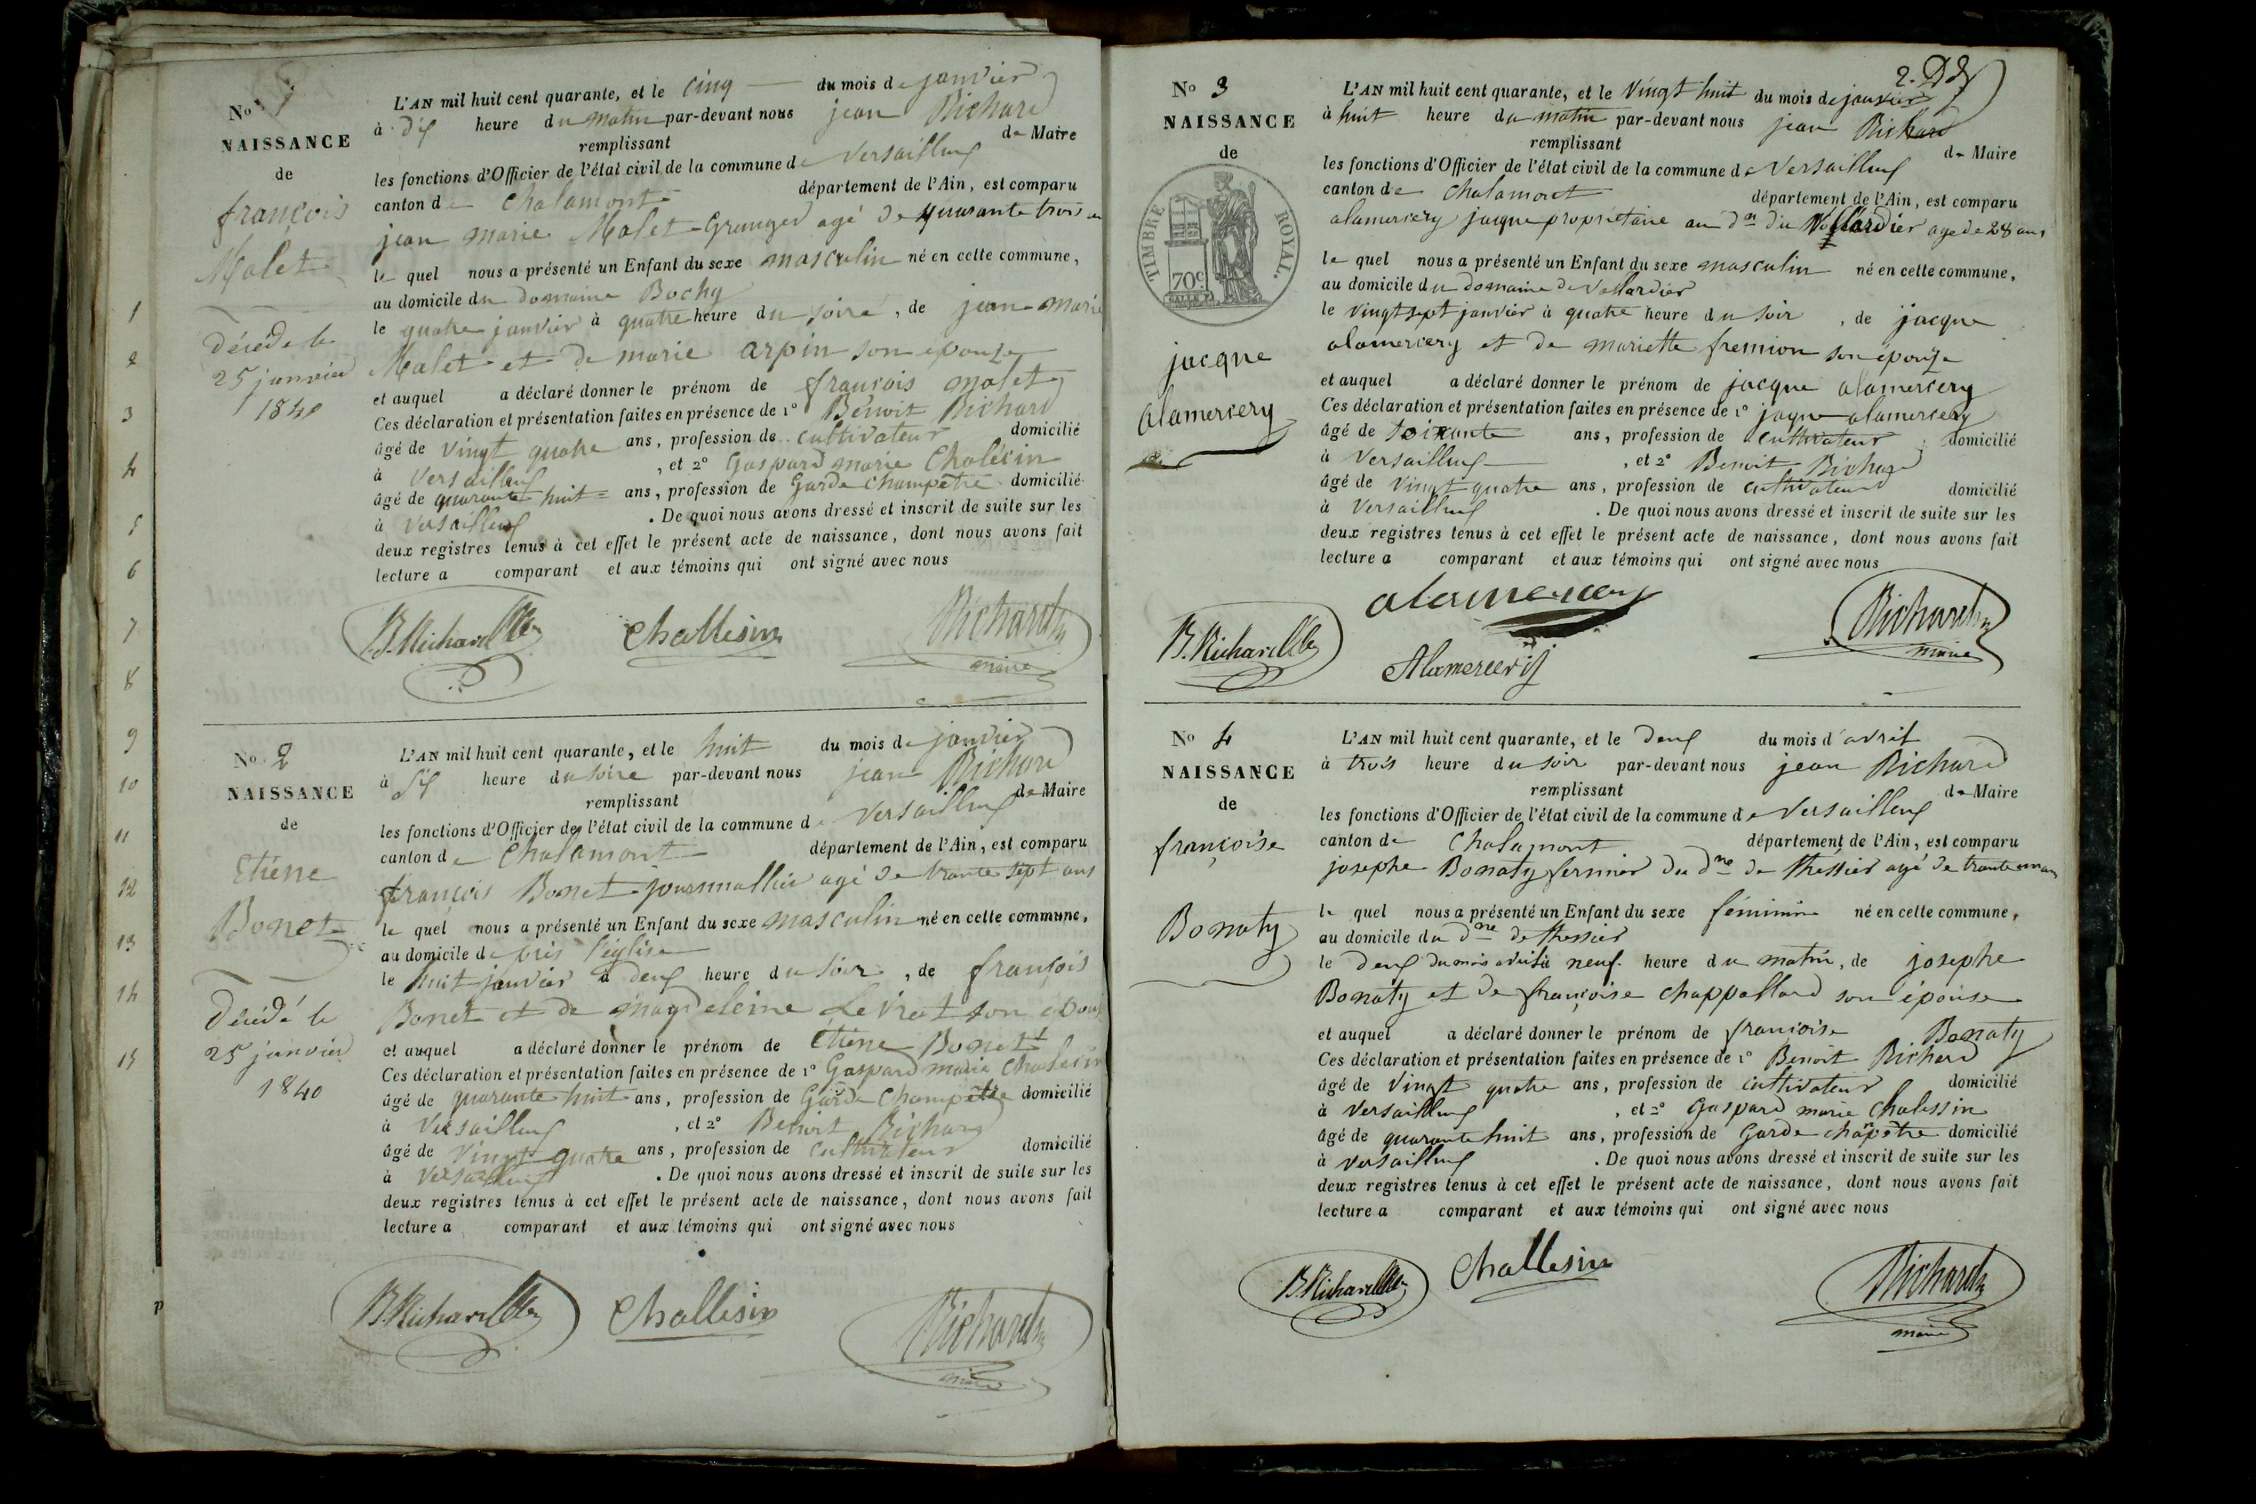 No 1
NAISSANCE
de
françois
Malet
Décédé le
25 janvier
1840
L'AN mil huit cent quarante, et le cinq du mois de janvier
à dix heure du matin par-devant nous jean Richard
remplissant de Maire
les fonctions d'Officier de l'état civil de la commune de Versailleux
canton de Chalamont département de l'Ain, est comparu
jean marie Malet Granger agé de quarante trois an
le quel nous a présenté un Enfant du sexe masculin né en cette commune,
au domicile du domaine Bochy
le quatre janvier à quatre heure du soire, de jean marie
Malet et de marie arpin son epouze
et auquel a déclaré donner le prénom de françois malet
Ces déclaration et présentation faites en présence de 1° Benoit Richard
âgé de vingt quatre ans, profession de cultivateur domicilié
à Versailleux, et 2° Gaspard marie Chalesin
âgé de quarante huit ans, profession de Garde Champetre domicilié
à Versailleux. De quoi nous avons dressé et inscrit de suite sur les
deux registres tenus à cet effet le présent acte de naissance, dont nous avons fait
lecture a comparant et aux témoins qui ont signé avec nous
B. Richard Challesin Richard
maire
1
2
3
4
5
6
7
8
9
10
11
12
13
14
15
No 2
NAISSANCE
de
Etiéne
Bonet
Décédé le
25 janvier
1840
L'AN mil huit cent quarante, et le huit du mois de janvier
à six heure du soire par-devant nous jean Richard
remplissant de Maire
les fonctions d'Officier de l'état civil de la commune de Versailleux
canton de Chalamont département de l'Ain, est comparu
françois Bonet journallier agé de trante sept ans
le quel nous a présenté un Enfant du sexe masculin né en cette commune,
au domicile de près l'église
le huit janvier à deux heure du soir, de françois
Bonet et de magdeleine Levrat son epouse
et auquel a déclaré donner le prénom de Etiéne Bonet
Ces déclaration et présentation faites en présence de 1° Gaspard marie Chalesin
âgé de quarante huit ans, profession de Garde Champetre domicilié
à Versailleux, et 2° Benoit Richard
âgé de vingt quatre ans, profession de cultivateur domicilié
à Versailleux. De quoi nous avons dressé et inscrit de suite sur les
deux registres tenus à cet effet le présent acte de naissance, dont nous avons fait
lecture a comparant et aux témoins qui ont signé avec nous
B. Richard Challesin Richard
maire
2.
No 3
NAISSANCE
de
TIMBRE ROYAL.
70c
jacque
alamercery
L'AN mil huit cent quarante, et le vingt huit du mois de janvier
à huit heure du matin par-devant nous jean Richard
remplissant de Maire
les fonctions d'Officier de l'état civil de la commune de Versailleux
canton de Chalamont département de l'Ain, est comparu
alamercery jacque propriétaire au dne du Vollardier age de 28 ans
le quel nous a présenté un Enfant du sexe masculin né en cette commune,
au domicile du domaine de Vollardier
le vingt sept janvier à quatre heure du soir, de jacque
alamercery et de mariette fremion son epouze
et auquel a déclaré donner le prénom de jacque alamercery
Ces déclaration et présentation faites en présence de 1° jaque alamercery
âgé de soixante ans, profession de cultivateur domicilié
à Versailleux, et 2° Benoit Richard
âgé de vingt quatre ans, profession de cultivateur domicilié
à Versailleux. De quoi nous avons dressé et inscrit de suite sur les
deux registres tenus à cet effet le présent acte de naissance, dont nous avons fait
lecture a comparant et aux témoins qui ont signé avec nous
alamercery
B. Richard Richard
Alamercery maire
No 4
NAISSANCE
de
françoise
Bonaty
L'AN mil huit cent quarante, et le deux du mois d'avril
à trois heure du soir par-devant nous jean Richard
remplissant de Maire
les fonctions d'Officier de l'état civil de la commune de Versailleux
canton de Chalamont département de l'Ain, est comparu
josephe Bonaty fermier du dne de thessier agé de trante un an
le quel nous a présenté un Enfant du sexe féminin né en cette commune,
au domicile du dne de thessier
le deux du mois avril à neuf heure du matin, de josephe
Bonaty et de françoise chappalland son épouse
et auquel a déclaré donner le prénom de françoise Bonaty
Ces déclaration et présentation faites en présence de 1° Benoit Richard
âgé de vingt quatre ans, profession de cultivateur domicilié
à Versailleux, et 2° Gaspard marie Chalessin
âgé de quarante huit ans, profession de Garde chapêtre domicilié
à Versailleux. De quoi nous avons dressé et inscrit de suite sur les
deux registres tenus à cet effet le présent acte de naissance, dont nous avons fait
lecture a comparant et aux témoins qui ont signé avec nous
B. Richard Challesin Richard
maire